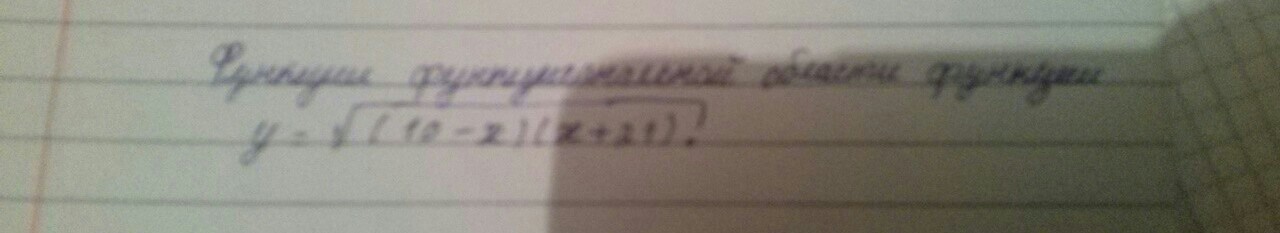 Функции функциональной области функции
y = √(10-x)(x+21).